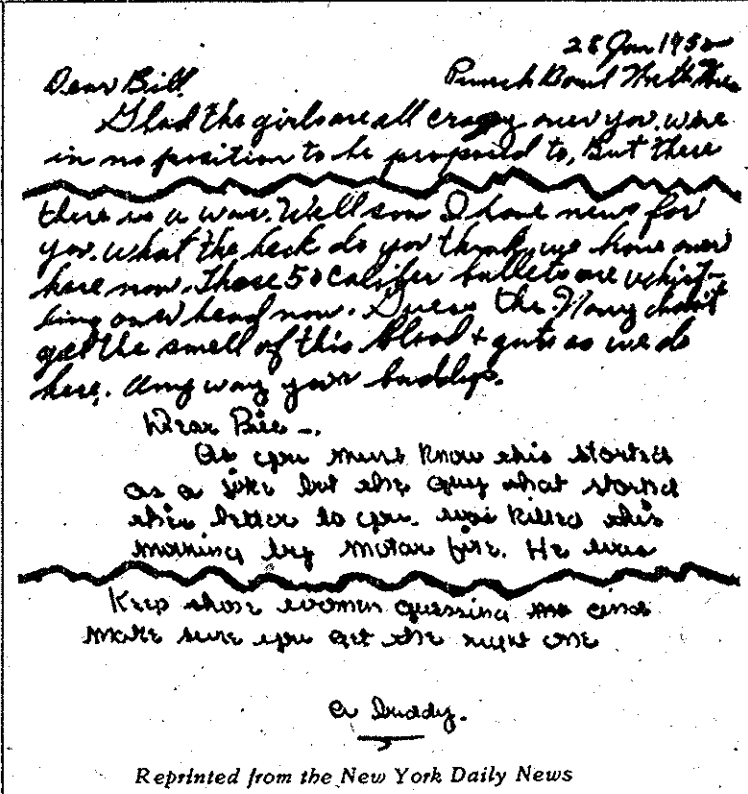 28 Jan 1952
Dear Bill, Punch Bowl
Glad the girls are all crazy over you. were
in no position to be proposed to, But there
there is a war. Well son I have news for
you. what the heck do you think we have over
here now. Those 50 caliber bullets are whist-
ling over head now. Guess the Navy don't
get the smell of this blood + guts as we do
here. Any way your buddys.
Dear Bill -.
As you must know this started
as a joke but the guy that started
this letter to you. was killed this
morning by motar fire. He was
Keep those women guessing and
make sure you get the right one
a Buddy.
Reprinted from the New York Daily News